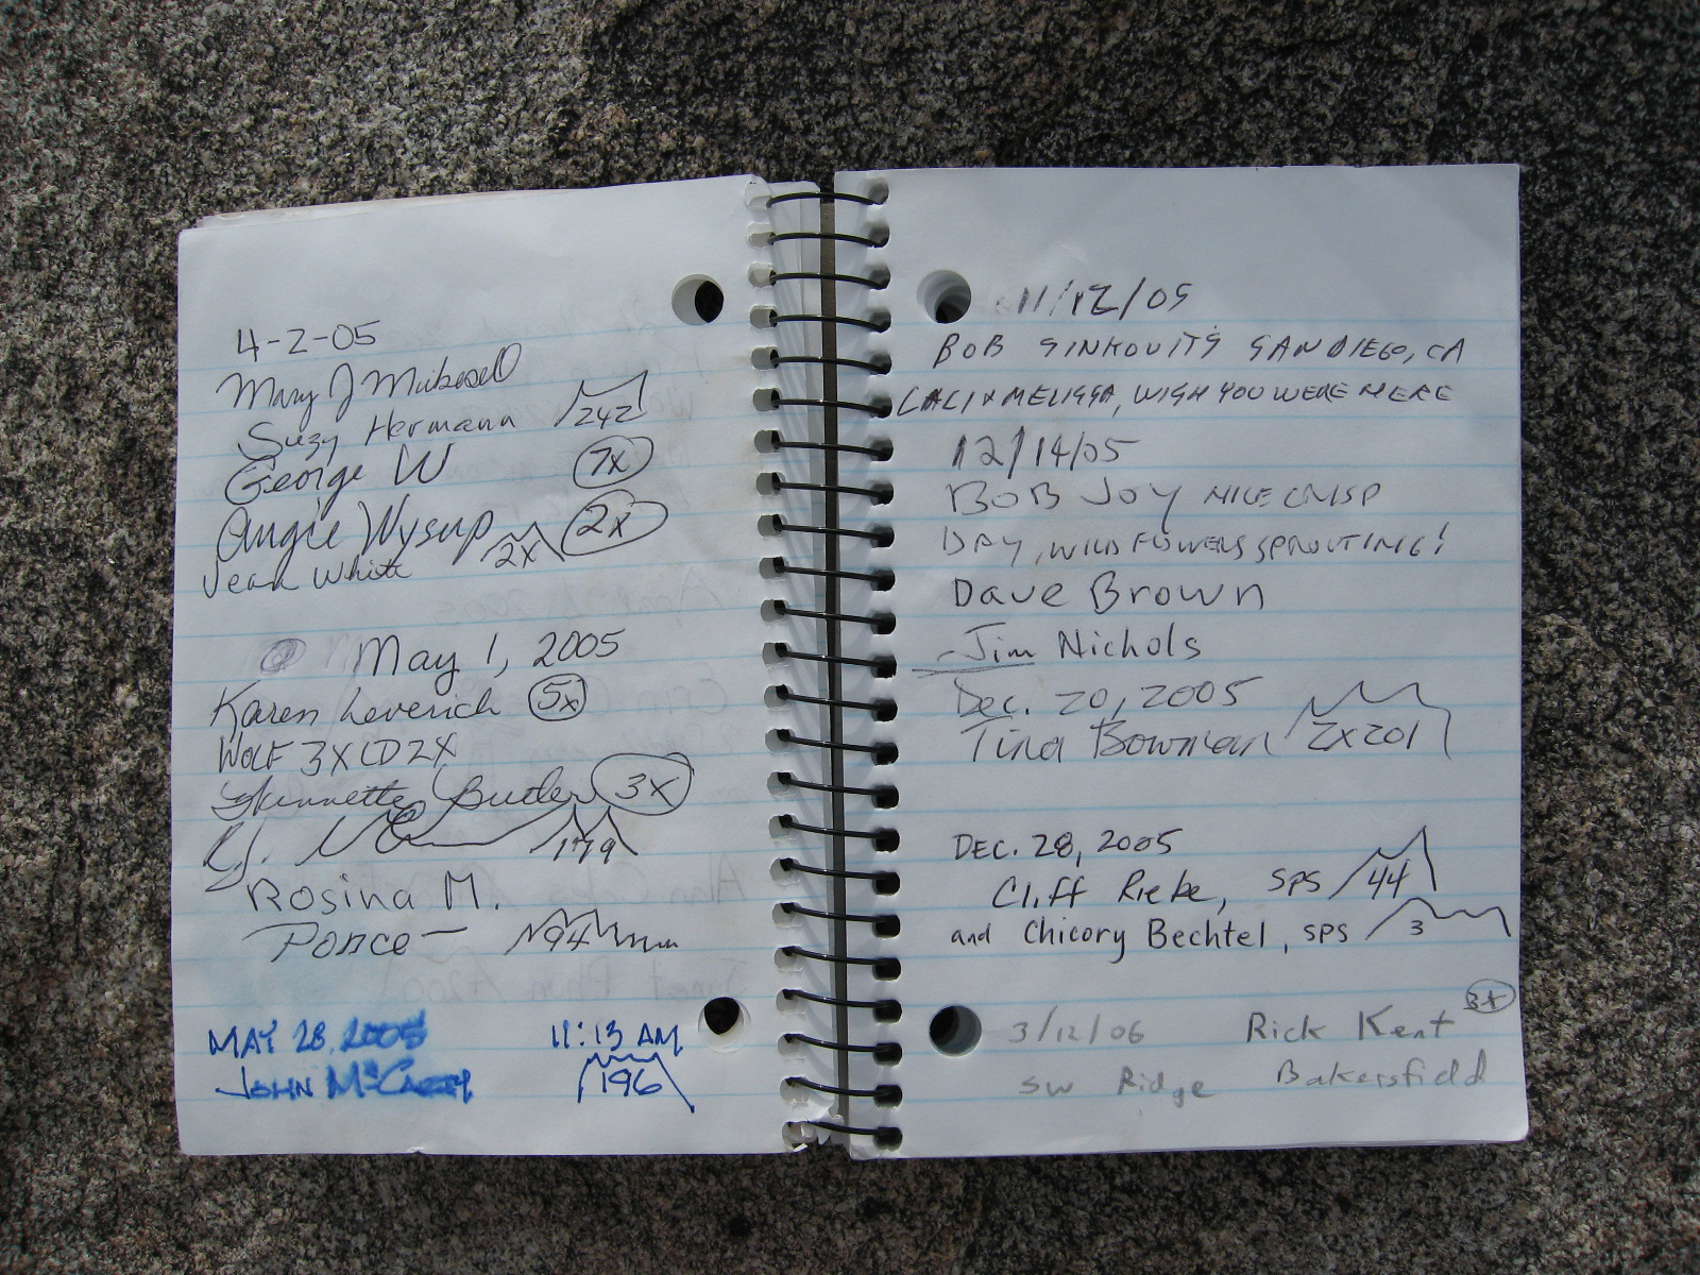 4-2-05
Mary J
Suzy Hermann 242
George W 7x
Angie Wysup 2x
Jean White 2x
May 1, 2005
Karen Leverich 5x
WOLF 3X LD 2X
Butler 3x
179
Rosina M.
Ponce 94
MAY 28, 2005 11:13 AM
JOHN McCARTY 196
11/12/05
BOB SINKOVITS SAN DIEGO, CA
CALI & MELISSA, WISH YOU WERE HERE
12/14/05
BOB JOY NICE CRISP
DAY, WILD FLOWERS SPROUTING!
Dave Brown
-Jim Nichols
Dec. 20, 2005
Tina Bowman 2x201
DEC. 28, 2005
Cliff Riebe, SPS 44
and Chicory Bechtel, SPS 3
3/12/06 Rick Kent 3x
SW Ridge Bakersfield